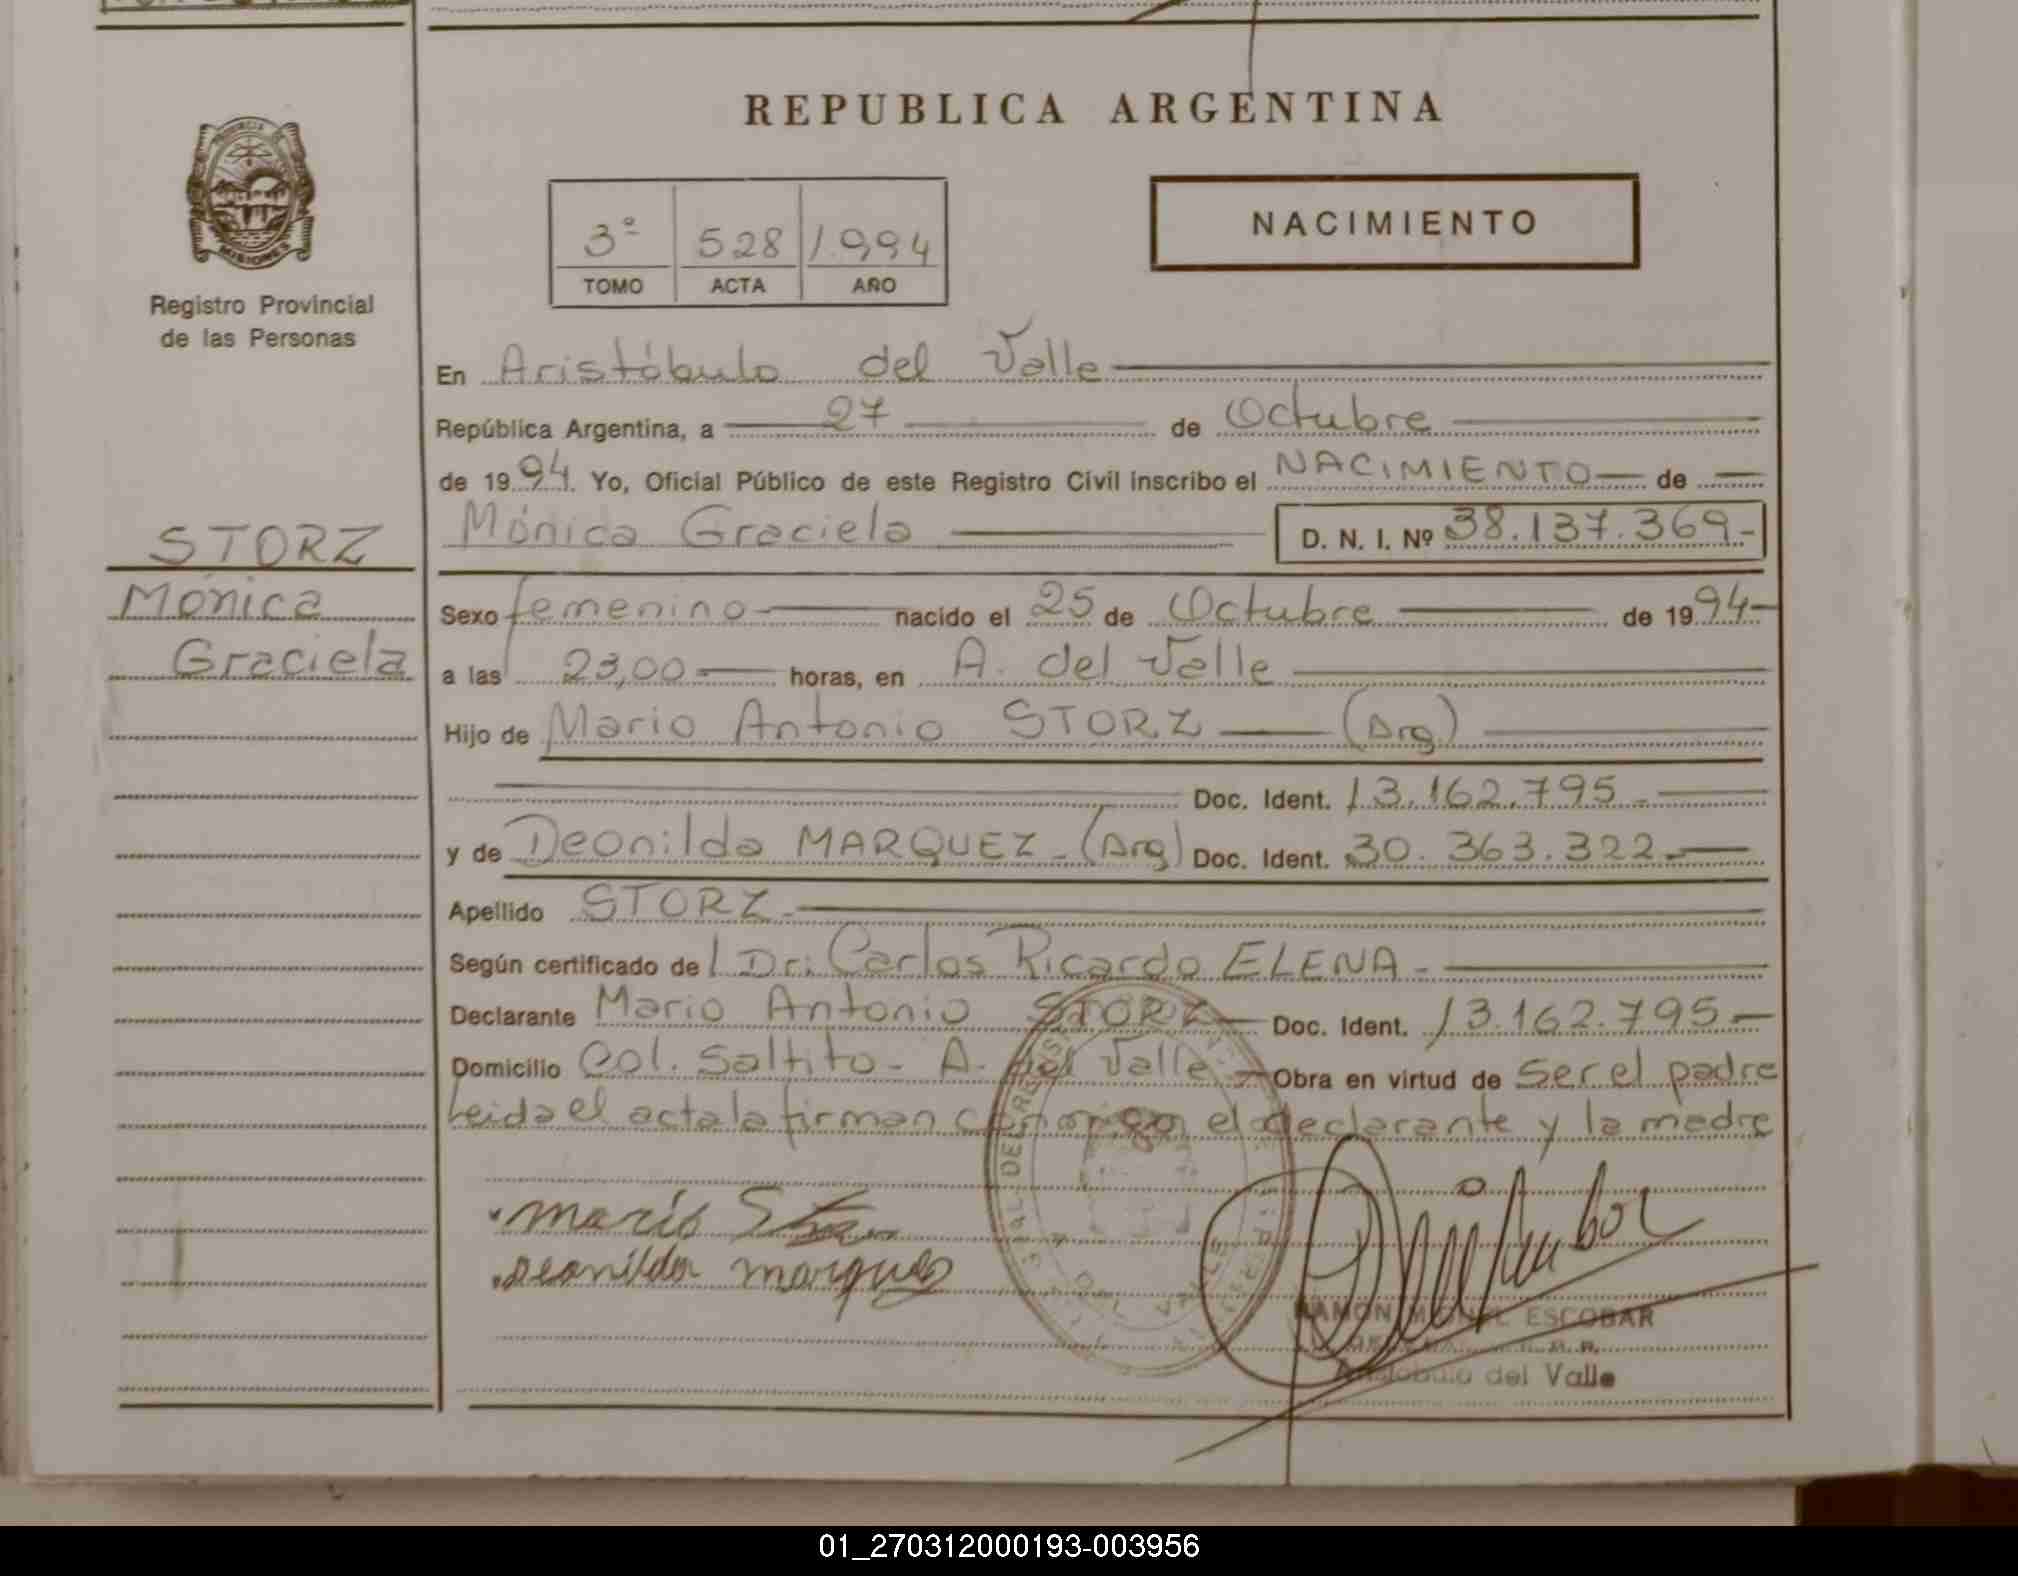 REPUBLICA ARGENTINA
PROVINCIA DE
MISIONES
Registro Provincial
de las Personas
3º 528 1.994
TOMO ACTA AÑO
NACIMIENTO
En Aristóbulo del Valle
República Argentina, a 27 de Octubre
de 1994. Yo, Oficial Público de este Registro Civil inscribo el NACIMIENTO de
Mónica Graciela D. N. I. Nº 38.137.369-
STORZ
Mónica
Graciela
Sexo femenino nacido el 25 de Octubre de 1994
a las 23,00 horas, en A. del Valle
Hijo de Mario Antonio STORZ (Arg.)
Doc. Ident. 13.162.795.-
y de Deonilda MARQUEZ - (Arg) Doc. Ident. 30.363.322.-
Apellido STORZ.-
Según certificado de Dr: Carlos Ricardo ELENA.-
Declarante Mario Antonio STORZ Doc. Ident. 13.162.795.-
Domicilio Col. Saltito - A. del Valle.- Obra en virtud de ser el padre
Leida el acta la firman conmigo el declarante y la madre
mario
deonilda marquez
RAMON MIGUEL ESCOBAR
Aristobulo del Valle
01_270312000193-003956